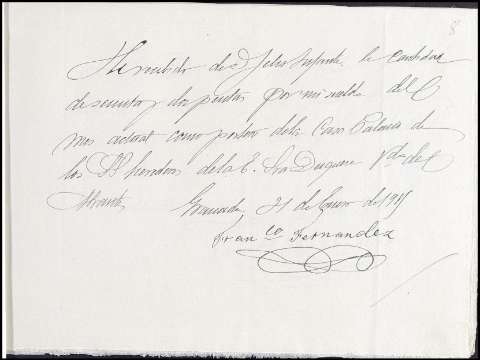 8
He recibido de D. Julio Infante la cantidad
de sesenta y dos pesetas por mi sueldo del
mes actual como portero de la Casa Palacio de
los SS. herederos de la E. Sra Duquesa Vda de
Granada, 31 de Enero de 1915
Fran.co Fernandez